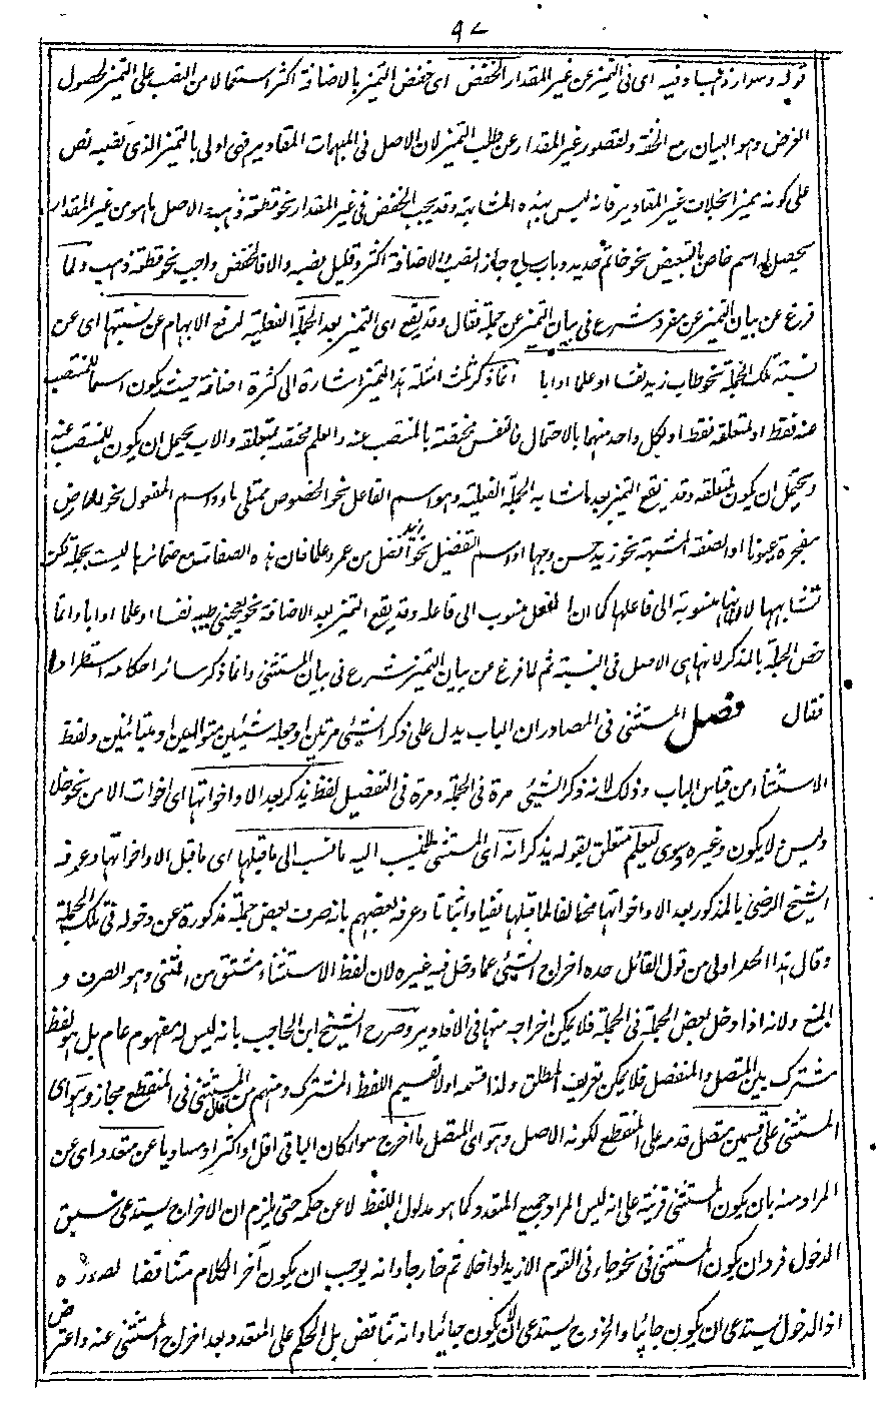 ٩٧
قوله وسوار ذهبا وفيه اى فى التميز عن غير المقدار الخفض اى خفض التميز بالاضافة اكثر استعمالا من النصب على التميز لحصول
الغرض وهو البيان مع الخفة ولقصور غير المقدار عن طلب التميز لان الاصل فى المبهمات المقادير فهى اولى بالتميز الذى نصبه نص
على كونه تميزا بخلاف غير المقادير فانه ليس بهذه المثابة وقد يجب الخفض فى غير المقدار نحو قطعة ذهب والاصل ما هو من غير المقدار
يحصل له اسم خاص بالتبعيض نحو خاتم حديد وباب ساج جاز النصب والاضافة اكثر وقليل نصبه والا فالخفض واجب نحو قطعة ذهب ولما
فرغ عن بيان التميز عن مفرد شرع فى بيان التميز عن جملة فقال وقد يقع اى التميز بعد الجملة الفعلية لرفع الابهام عن نسبتها اى عن
نسبة تلك الجملة نحو طاب زيد نفسا او علما او ابا انما ذكر ثلث امثلة بهذا التميز اشارة الى كثرة اضافة حيث يكون اسما للمنتصب
عنه فقط او لمتعلقه فقط او لكل واحد منهما بالاحتمال فالنفس مختصة بالمنتصب عنه والعلم مختص بمتعلقه والاب يحتمل ان يكون للمنتصب عنه
ويحتمل ان يكون لمتعلقه وقد يقع التميز بعد ما شابه الجملة الفعلية وهو اسم الفاعل نحو الحوض ممتلى ماء واسم المفعول نحو الارض
مفجرة عيونا او الصفة المشبهة نحو زيد حسن وجها او اسم التفضيل نحو زيد افضل من عمرو علما فان هذه الصفات مع ضمائرها ليست بجملة لكن
تشابهها لانها منسوبة الى فاعلها كما ان الفعل منسوب الى فاعله وقد يقع التميز بعد الاضافة نحو يعجبنى طيبه نفسا او علما او ابا وانما
خص الجملة بالذكر لانها هى الاصل فى النسبة ثم لما فرغ عن بيان التميز شرع فى بيان المستثنى وانما ذكر سائر احكامه استطرادا
فقال فصل المستثنى فى المصادر ان الباب يدل على ذكر الشيئ مرتين او جعله شيئين متواليين او متبائنين ولفظ
الاستثناء من قياس الباب وذلك لانه ذكر الشيئ مرة فى الجملة ومرة فى التفصيل لفظ يذكر بعد الا واخواتها اى اخوات الا من نحو خلا
وليس لا يكون وغيره وسوى ليعلم متعلق بقوله يذكر انه اى المستثنى لا ينسب اليه ما نسب الى ما قبلها اى ما قبل الا واخواتها وعرفه
الشيخ الرضى بالمذكور بعد الا واخواتها مخالفا لما قبلها نفيا واثباتا وعرفه بعضهم بانه صرف بعض جملة مذكورة عن دخوله فى تلك الجملة
وقال هذا الحد اولى من قول القائل حده اخراج الشيئ عما دخل فيه غيره لان لفظ الاستثناء مشتق من الثنى وهو الصرف و
المنع ولانه اذا دخل بعض الجملة فى الجملة فلا يمكن اخراجه منها فى الاقادير وصرح الشيخ ابن الحاجب بانه ليس له مفهوم عام بل هو لفظ
مشترك بين المتصل والمنفصل فلا يمكن تعريف المطلق ولذا قسمه اولا تقسيم اللفظ المشترك ومنهم من قال المستثنى فى المنقطع مجاز وهو اى
المستثنى على قسمين متصل قدمه على المنقطع لكونه الاصل وهو اى المتصل ما اخرج سواء كان الباقى اقل او اكثر او مساويا عن متعدد اى عن
المراد منه بان يكون المستثنى قرينة على انه ليس المراد جميع المتعدد كما هو مدلول اللفظ لا عن حكمه حتى يلزم ان الاخراج يستدعى سبق
الدخول فرد ان يكون المستثنى فى نحو جاءنى القوم الا زيدا داخلا ثم خارجا وانه يوجب ان يكون آخر الكلام متناقضا لصدره
اذ الدخول يستدعى ان يكون جائيا والخروج يستدعى ان لا يكون جائيا وانه تناقض بل الحكم على المتعدد بعد اخراج المستثنى عنه واعترض